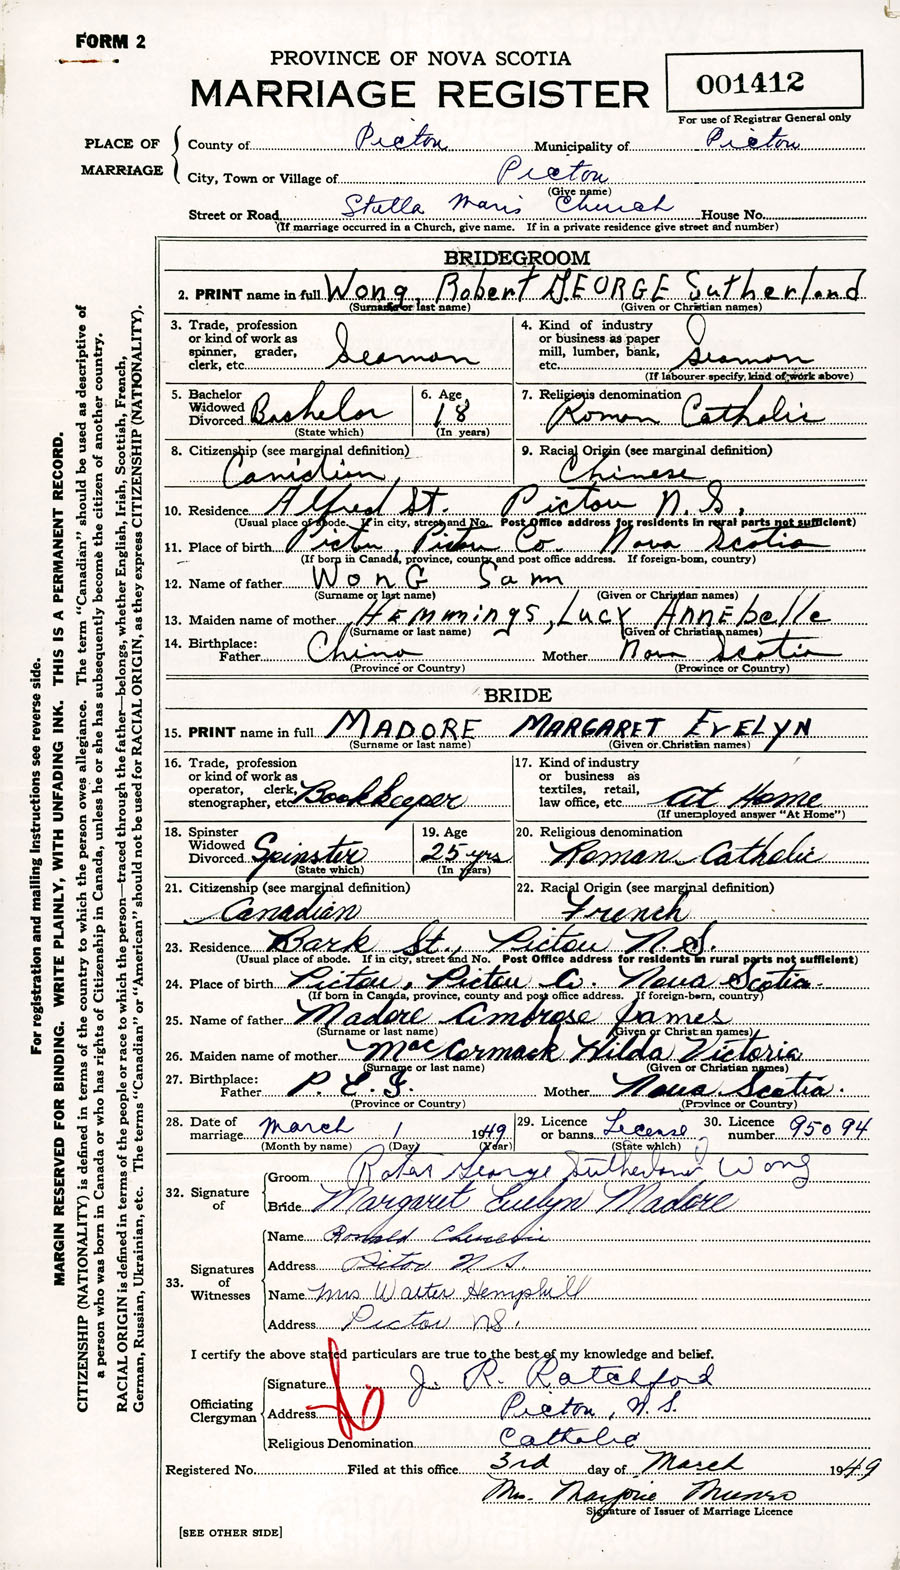 FORM 2
PROVINCE OF NOVA SCOTIA
MARRIAGE REGISTER
001412
For use of Registrar General only
PLACE OF MARRIAGE
County of Pictou Municipality of Pictou
City, Town or Village of Pictou
(Give name)
Street or Road Stella Maris Church House No.
(If marriage occurred in a Church, give name. If in a private residence give street and number)
BRIDEGROOM
2. PRINT name in full Wong, Robert GEORGE Sutherland
(Surname or last name) (Given or Christian names)
3. Trade, profession or kind of work as spinner, grader, clerk, etc. Seaman
4. Kind of industry or business as paper mill, lumber, bank, etc. Seaman
(If labourer specify, kind of work above)
5. Bachelor Widowed Divorced Bachelor
(State which)
6. Age 18
(In years)
7. Religious denomination Roman Catholic
8. Citizenship (see marginal definition) Canidian
9. Racial Origin (see marginal definition) Chinese
10. Residence Alfred St. Pictou N.S.
(Usual place of abode. If in city, street and No. Post Office address for residents in rural parts not sufficient)
11. Place of birth Pictou, Pictou Co. Nova Scotia
(If born in Canada, province, county and post office address. If foreign-born, country)
12. Name of father WonG Sam
(Surname or last name) (Given or Christian names)
13. Maiden name of mother Hemmings, Lucy Annebelle
(Surname or last name) (Given or Christian names)
14. Birthplace: Father China Mother Nova Scotia
(Province or Country) (Province or Country)
BRIDE
15. PRINT name in full MADORE MARGARET EVELYN
(Surname or last name) (Given or Christian names)
16. Trade, profession or kind of work as operator, clerk, stenographer, etc. Bookkeeper
17. Kind of industry or business as textiles, retail, law office, etc. At Home
(If unemployed answer "At Home")
18. Spinster Widowed Divorced Spinster
(State which)
19. Age 25 yrs
(In years)
20. Religious denomination Roman Catholic
21. Citizenship (see marginal definition) Canadian
22. Racial Origin (see marginal definition) French
23. Residence Bark St., Pictou N.S.
(Usual place of abode. If in city, street and No. Post Office address for residents in rural parts not sufficient)
24. Place of birth Pictou, Pictou Co. Nova Scotia.
(If born in Canada, province, county and post office address. If foreign-born, country)
25. Name of father Madore Ambrose James
(Surname or last name) (Given or Christian names)
26. Maiden name of mother MacCormack Hilda Victoria
(Surname or last name) (Given or Christian names)
27. Birthplace: Father P.E.I. Mother Nova Scotia.
(Province or Country) (Province or Country)
28. Date of marriage March 1 1949
(Month by name) (Day) (Year)
29. Licence or banns License
(State which)
30. Licence number 95094
32. Signature of
Groom George Sutherland Wong
Bride Margaret Evelyn Madore
33. Signatures of Witnesses
Name Ronald
Address Pictou N.S.
Name Mrs Walter Hemphill
Address Pictou NS.
I certify the above stated particulars are true to the best of my knowledge and belief.
Officiating Clergyman
Signature J. R. Ratchford
Address Pictou, N.S.
Religious Denomination Catholic
Registered No. Filed at this office 3rd day of March 1949
Mrs. Marjorie Munro
Signature of Issuer of Marriage Licence
[SEE OTHER SIDE]
For registration and mailing instructions see reverse side.
MARGIN RESERVED FOR BINDING. WRITE PLAINLY, WITH UNFADING INK. THIS IS A PERMANENT RECORD.
CITIZENSHIP (NATIONALITY) is defined in terms of the country to which the person owes allegiance. The term "Canadian" should be used as descriptive of
a person who was born in Canada or who has rights of Citizenship in Canada, unless he or she has subsequently become the citizen of another country.
RACIAL ORIGIN is defined in terms of the people or race to which the person—traced through the father—belongs, whether English, Irish, Scottish, French,
German, Russian, Ukrainian, etc. The terms "Canadian" or "American" should not be used for RACIAL ORIGIN, as they express CITIZENSHIP (NATIONALITY).